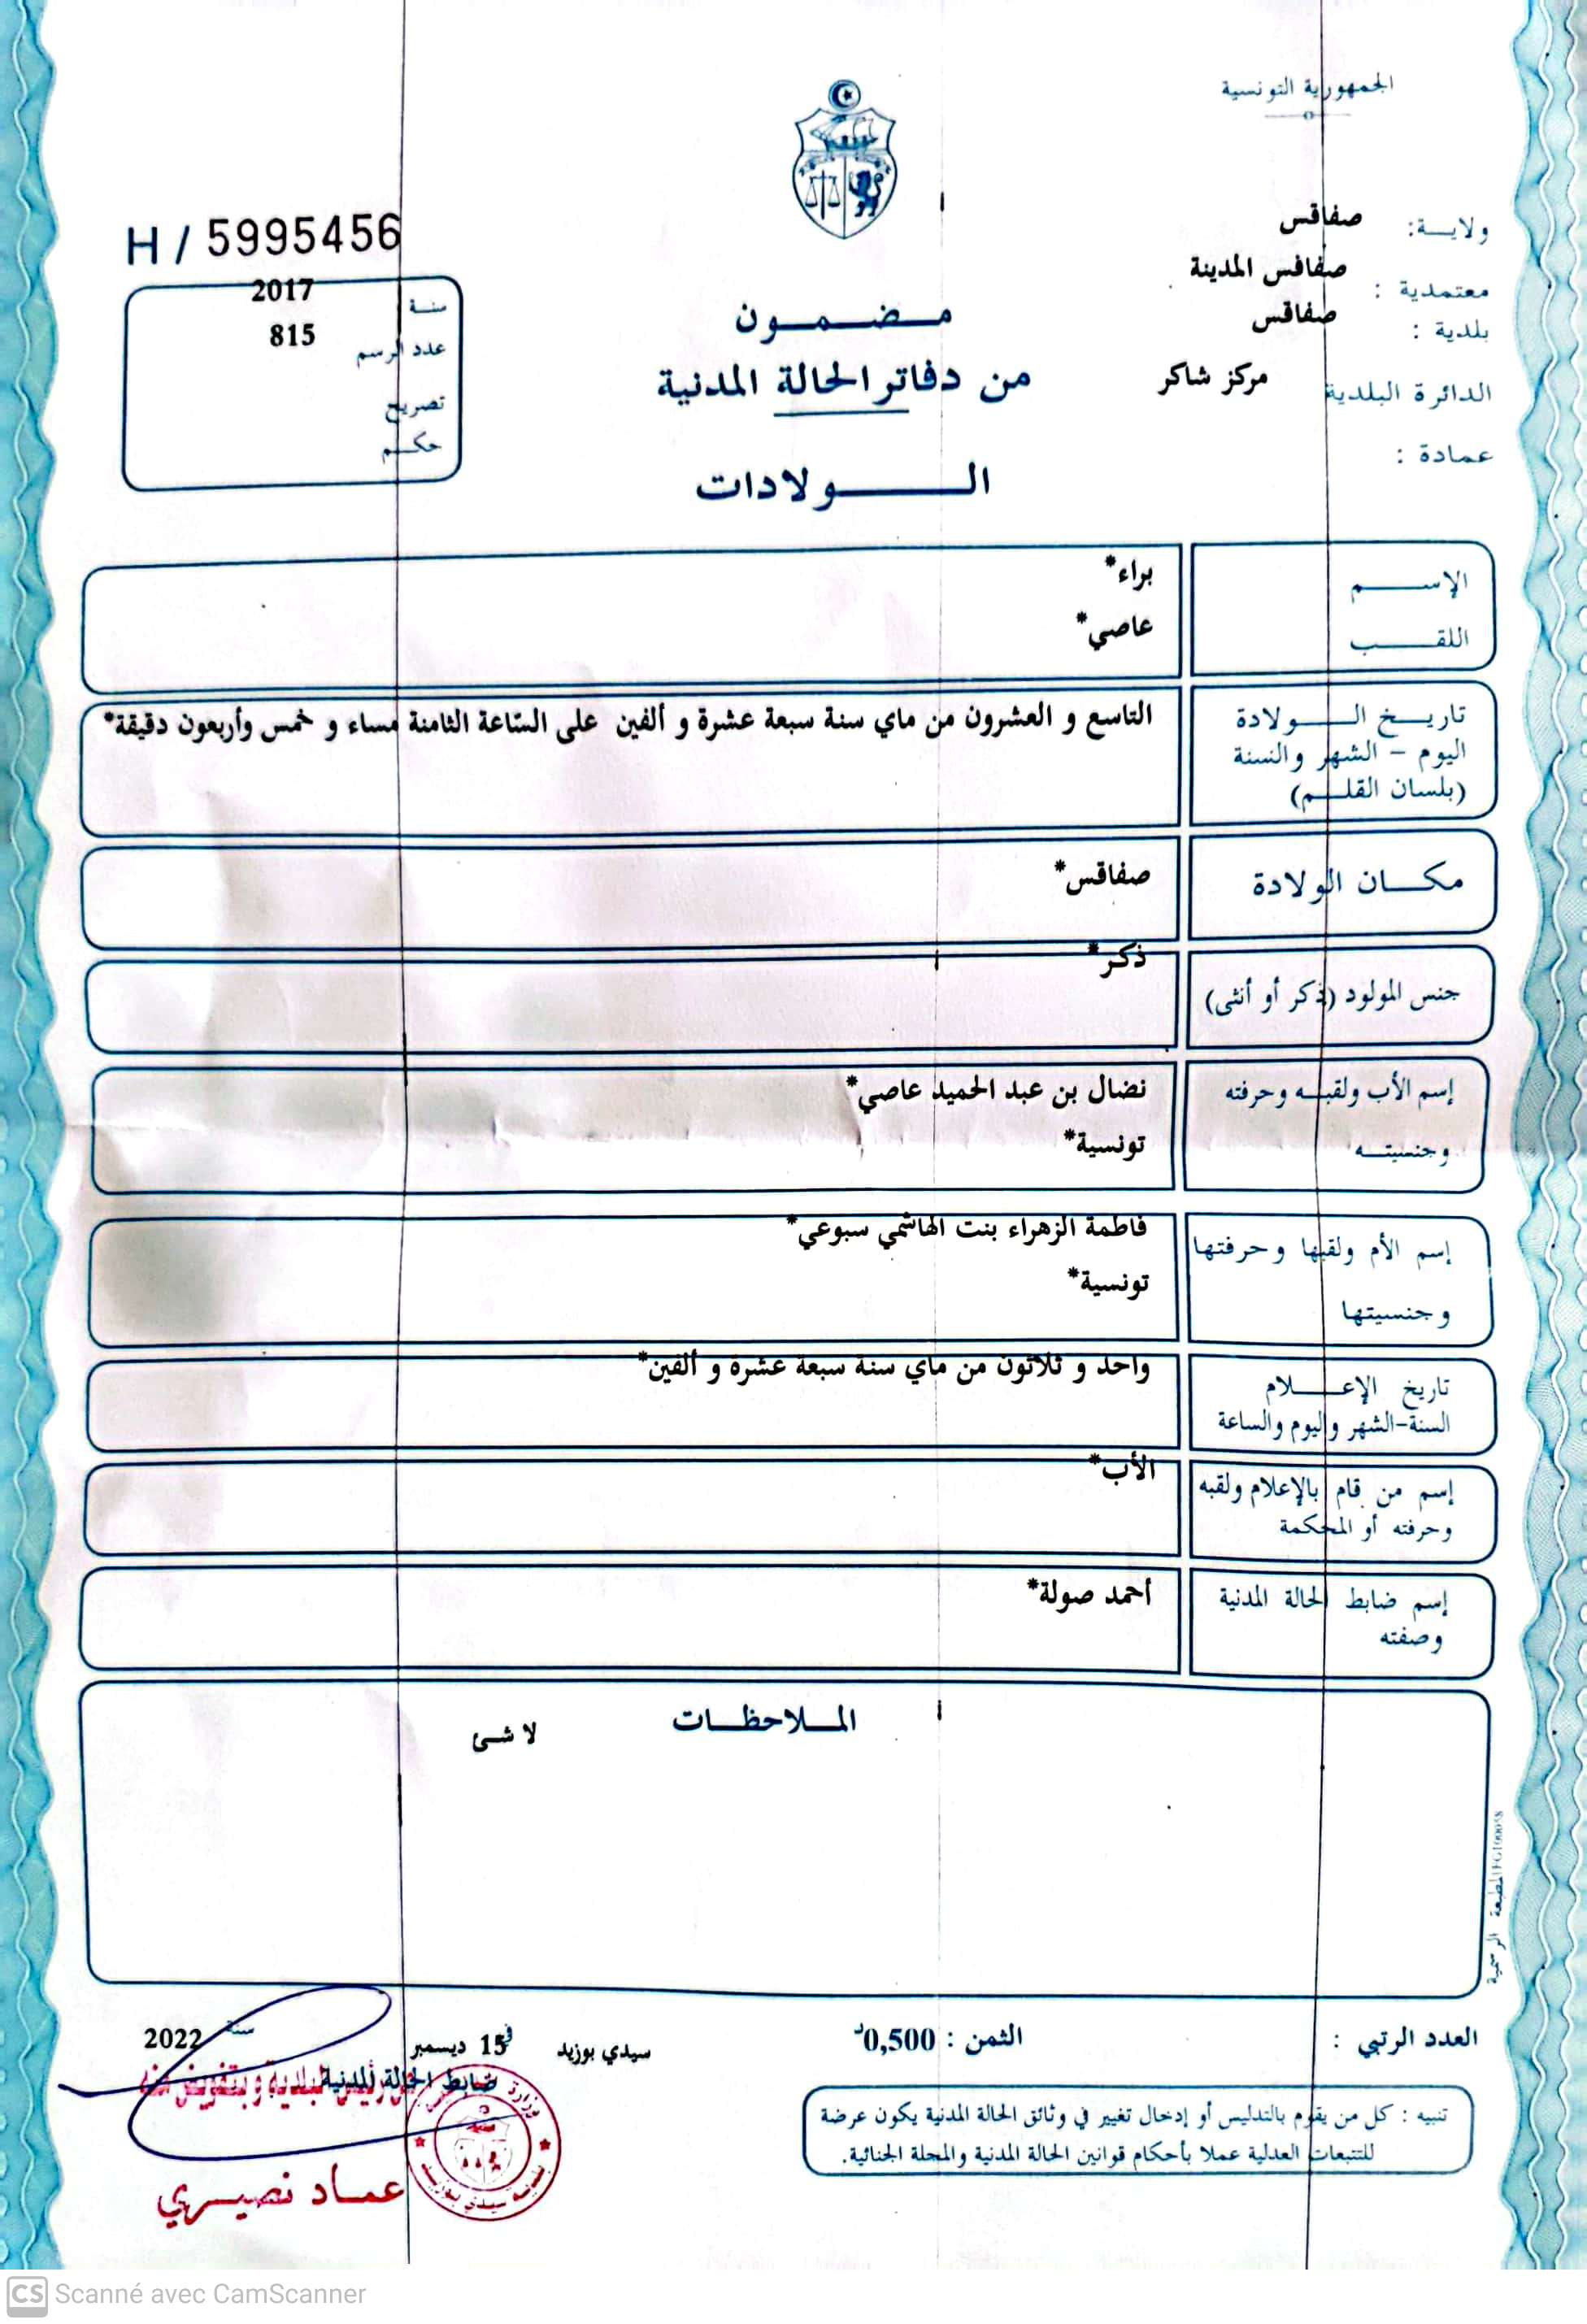 الجمهورية التونسية
ولاية: صفاقس
معتمدية : صفاقس المدينة
بلدية : صفاقس
الدائرة البلدية مركز شاكر
عمادة :
مضمون
من دفاتر الحالة المدنية
الولادات
H / 5995456
سنة 2017
عدد الرسم 815
تصريح
حكم
الإسم براء*
اللقب عاصي*
تاريخ الولادة التاسع و العشرون من ماي سنة سبعة عشرة و ألفين على السّاعة الثامنة مساء و خمس وأربعون دقيقة*
اليوم - الشهر والسنة
(بلسان القلم)
مكان الولادة صفاقس*
جنس المولود (ذكر أو أنثى) ذكر*
إسم الأب ولقبه وحرفته نضال بن عبد الحميد عاصي*
وجنسيته تونسية*
إسم الأم ولقبها وحرفتها فاطمة الزهراء بنت الهاشمي سبوعي*
وجنسيتها تونسية*
تاريخ الإعلام واحد و ثلاثون من ماي سنة سبعة عشرة و ألفين*
السنة-الشهر واليوم والساعة
إسم من قام بالإعلام ولقبه الأب*
وحرفته أو المحكمة
إسم ضابط الحالة المدنية أحمد صولة*
وصفته
الملاحظات
لا شئ
المطبعة الرسمية
العدد الرتبي :
الثمن : 0,500د
سيدي بوزيد في 15 ديسمبر سنة 2022
ضابط الحالة المدنية
تنبيه : كل من يقوم بالتدليس أو إدخال تغيير في وثائق الحالة المدنية يكون عرضة
للتتبعات العدلية عملا بأحكام قوانين الحالة المدنية والمجلة الجنائية.
عماد نصيري
CS Scanné avec CamScanner